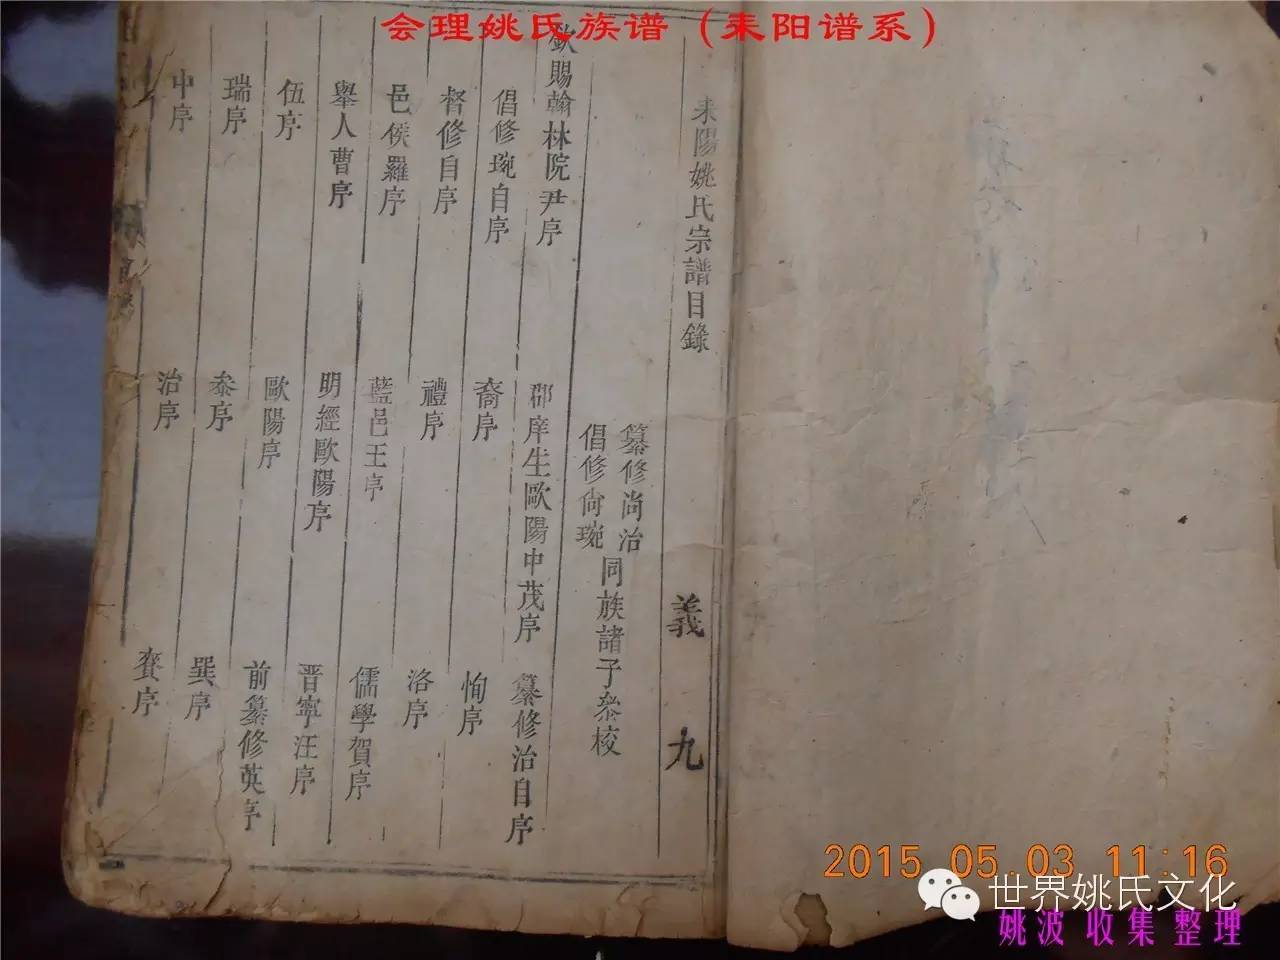 会理姚氏族谱（耒阳谱系）
耒陽姚氏宗譜目錄
義 九
纂修尚治
倡修尚琬
同族諸子叅校
欽賜翰林院尹序
郡庠生歐陽中茂序
纂修治自序
倡修琬自序
裔序
恂序
督修自序
禮序
洛序
邑侯羅序
藍邑王序
儒學賀序
舉人曹序
明經歐陽序
晋寧汪序
伍序
歐陽序
前纂修英序
瑞序
泰序
巽序
中序
治序
賽序
2015.05.03 11:16
世界姚氏文化
姚波 收集整理